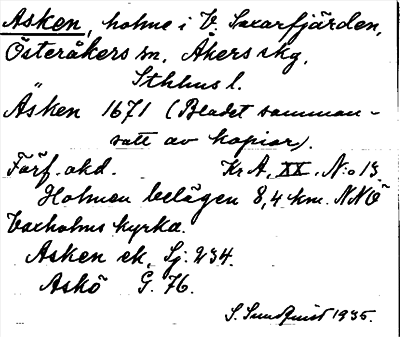 Asken, holme i V. Saxarfjärden,
Österåkers sn, Åkers skg,
Sthlms l.
Äsken 1671 (Bladet samman-
satt av kopior).
Förf. okd. Kr A, XX, N:o 13.
Holmen belägen 8,4 km. NNÖ
Vaxholms kyrka.
Asken ek, Sj. 234.
Askö G. 76.
S. Sundquist 1935.